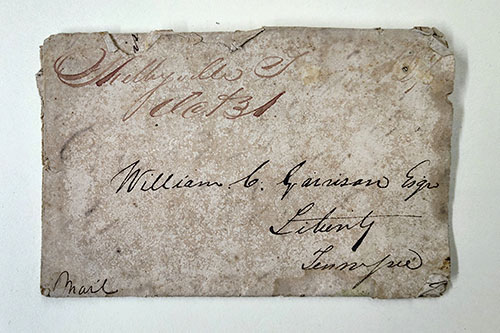 Shelbyville T
Oct 31
William C. Garrison Esqr
Liberty
Tennessee
Mail